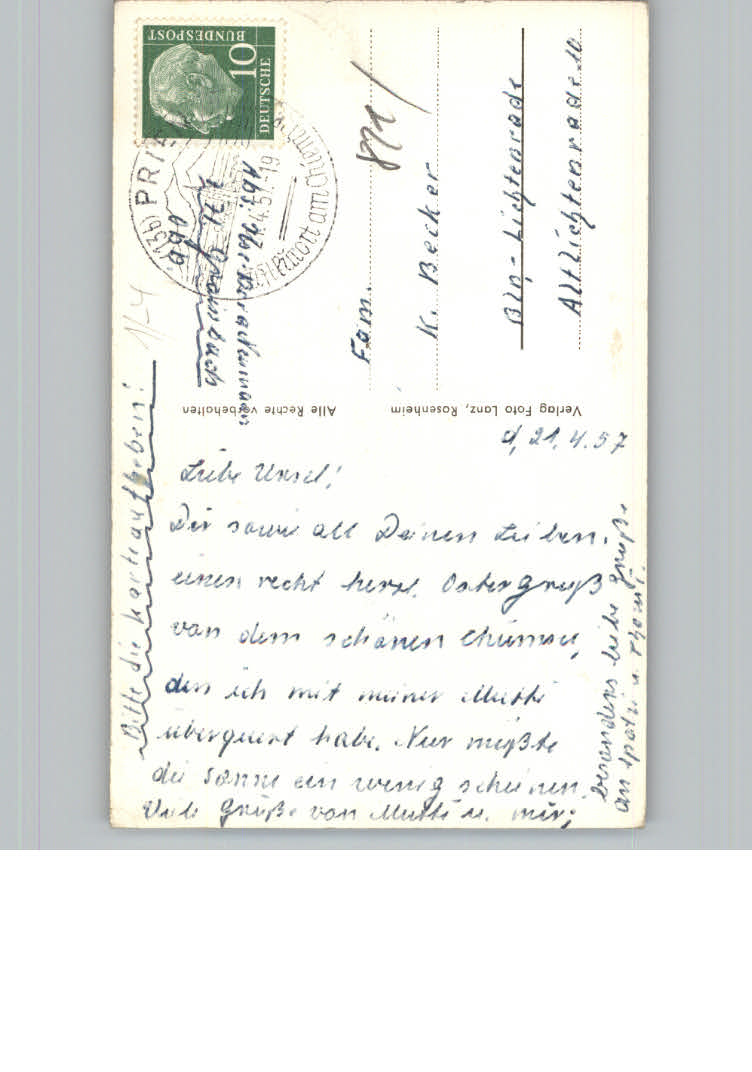 DEUTSCHE
BUNDESPOST
10
(13b) PRIEN
21.4.57.-19
Luftkurort am Chiemsee
Abs.
Fam.
K. Becker
Bln.-Lichtenrade
Alt Lichtenrade 10
Verlag Foto Lanz, Rosenheim
Alle Rechte vorbehalten
d. 21.4.57
Liebe Ursel!
Dir sowie all Deinen Lieben
einen recht herzl. Ostergruß
von dem schönen Chiemsee,
den ich mit meiner Mutti
überquert habe. Nur müßte
die Sonne ein wenig scheinen.
Viele Grüße von Mutti u. mir;
besonders liebe Grüße
an Spatzi u.
Bitte die Karte aufheben!
1/24